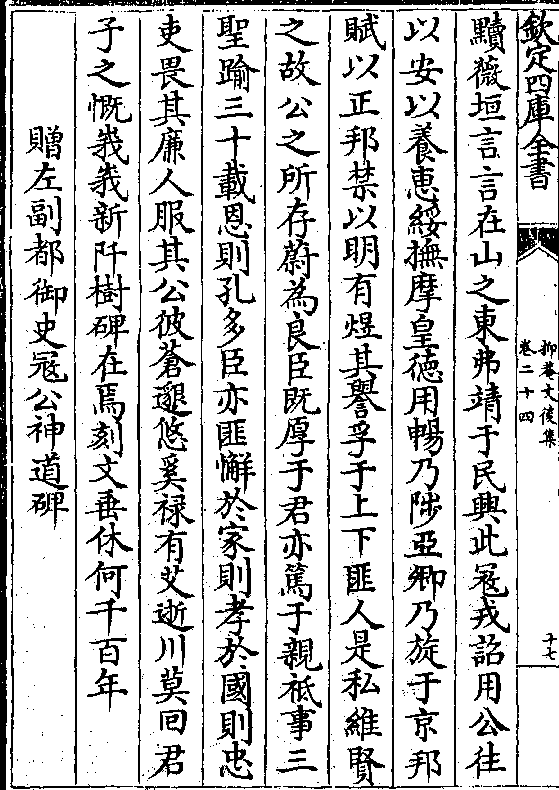 欽定四庫全書
抑菴文後集
卷二十四
十七
黷薇垣言言在山之東弗靖于民興此寇戎詔用公往
以安以養惠綏撫摩皇德用暢乃陟亞卿乃旋于京邦
賦以正邦禁以明有煜其譽孚于上下匪人是私維賢
之故公之所存蔚為良臣既厚于君亦篤于親祗事三
聖踰三十載恩則孔多臣亦匪懈於家則孝於國則忠
吏畏其廉人服其公彼蒼邈悠奚禄有艾逝川莫回君
子之慨峩峩新阡樹碑在焉刻文垂休何千百年
贈左副都御史冦公神道碑